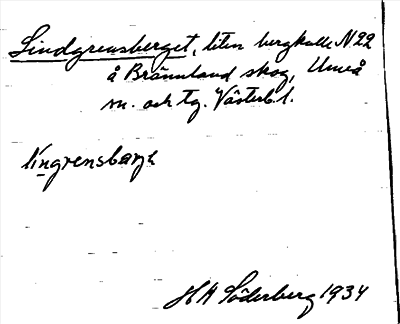 Lindgrensberget, liten bergkulle N 22
å Brännland skog, Umeå
sn. och tg. Västerb. l.
HA Söderberg 1934